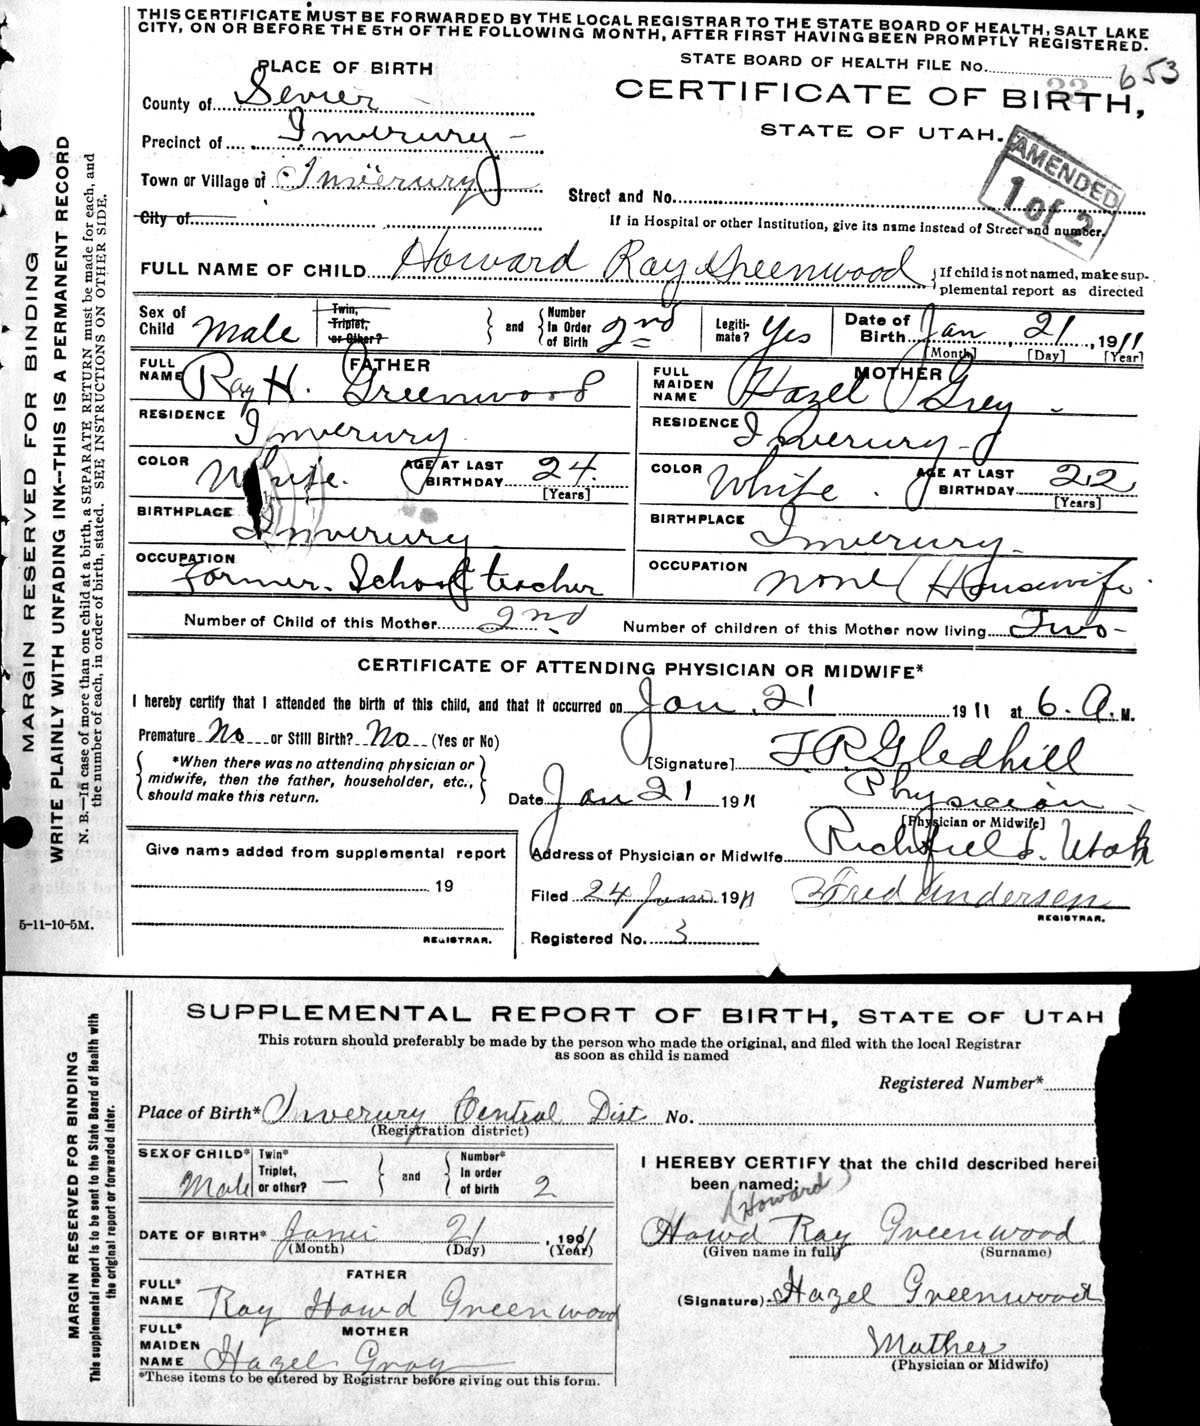 THIS CERTIFICATE MUST BE FORWARDED BY THE LOCAL REGISTRAR TO THE STATE BOARD OF HEALTH, SALT LAKE
CITY, ON OR BEFORE THE 5TH OF THE FOLLOWING MONTH, AFTER FIRST HAVING BEEN PROMPTLY REGISTERED.
STATE BOARD OF HEALTH FILE No. 653
PLACE OF BIRTH
CERTIFICATE OF BIRTH,
STATE OF UTAH.
AMENDED
1 of 2
County of Sevier
Precinct of Inverury
Town or Village of Inverury
City of
Street and No.
If in Hospital or other Institution, give its name instead of Street and number.
FULL NAME OF CHILD Howard Ray Greenwood { If child is not named, make sup-
plemental report as directed
Sex of Child Male Twin, Triplet, or Other? } and { Number In Order of Birth 2nd Legiti-mate? Yes Date of Birth Jan 21, 1911
[Month] [Day] [Year]
FATHER
FULL NAME Ray H. Greenwood
RESIDENCE Inverury
COLOR White. AGE AT LAST BIRTHDAY 24
[Years]
BIRTHPLACE Inverury
OCCUPATION Farmer. School teacher
MOTHER
FULL MAIDEN NAME Hazel Grey
RESIDENCE Inverury
COLOR White. AGE AT LAST BIRTHDAY 22
[Years]
BIRTHPLACE Inverury
OCCUPATION None (Housewife
Number of Child of this Mother 2nd Number of children of this Mother now living Two
CERTIFICATE OF ATTENDING PHYSICIAN OR MIDWIFE*
I hereby certify that I attended the birth of this child, and that it occurred on Jan. 21 1911 at 6. A. M.
Premature No or Still Birth? No (Yes or No)
*When there was no attending physician or
midwife, then the father, householder, etc.,
should make this return.
[Signature] T R Gledhill
Date Jan 21 1911 Physician
[Physician or Midwife]
Address of Physician or Midwife Richfield. Utah
Give name added from supplemental report
19
REGISTRAR.
Filed 24 1911 Fred Andersen
REGISTRAR.
Registered No. 3
5-11-10-5M.
MARGIN RESERVED FOR BINDING
WRITE PLAINLY WITH UNFADING INK—THIS IS A PERMANENT RECORD
N. B.—In case of more than one child at a birth, a SEPARATE RETURN must be made for each, and
the number of each, in order of birth, stated. SEE INSTRUCTIONS ON OTHER SIDE.
SUPPLEMENTAL REPORT OF BIRTH, STATE OF UTAH
This return should preferably be made by the person who made the original, and filed with the local Registrar
as soon as child is named
Registered Number*
Place of Birth* Inverury Central Dist No.
(Registration district)
SEX OF CHILD* Male Twin* Triplet, or other? — } and { Number* In order of birth 2
DATE OF BIRTH* 21, 1911
(Month) (Day) (Year)
FATHER
FULL* NAME Ray Howd Greenwood
MOTHER
FULL* MAIDEN NAME Hazel Gray
*These items to be entered by Registrar before giving out this form.
I HEREBY CERTIFY that the child described herei
been named:
(Howard)
Howd Ray Greenwood
(Given name in full) (Surname)
(Signature) Hazel Greenwood
Mother
(Physician or Midwife)
MARGIN RESERVED FOR BINDING
This supplemental report is to be sent to the State Board of Health with
the original report or forwarded later.